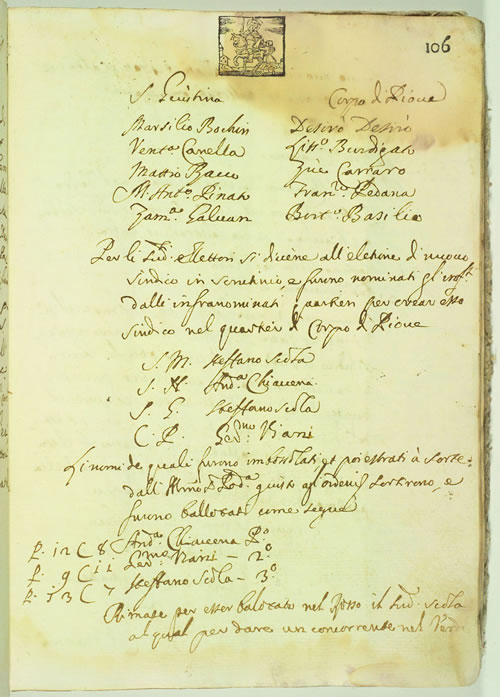 106
S. Giustina Corpo di Pioue
Marsilio Bochin Desirò Desirò
Vent.ª Canella Burdigato
Mattio Bacco Zuè Carraro
M. Ant.º Pinato Fran.º Pedana
Zam.ª Galuan Bort.º Basilio
Per li Elettori si diuene all'eletione di nuouo
sindico in scrutinio, e furono nominati gl'
dalli infranominati quartieri per crear esso
sindico nel quartier di Corpo di Pioue
S. M. Steffano Scola
S. N. And.ª Chiauena
S. G. Steffano Scola
C. P. Nani
Li nomi de quali furono imbossolati et poi estrati à sorte
dall' giusto gl'ordeni sortirono, e
furono ballotati come segue
P. 12 C 8 And.ª Chiauena P.º
P. 9 C 11 Nani - 2.º
P. 13 C 7 Steffano Scola - 3.º
Rimase per esser balotato nel Rosso il Scola
al qual per dare un concorrente nel Verde